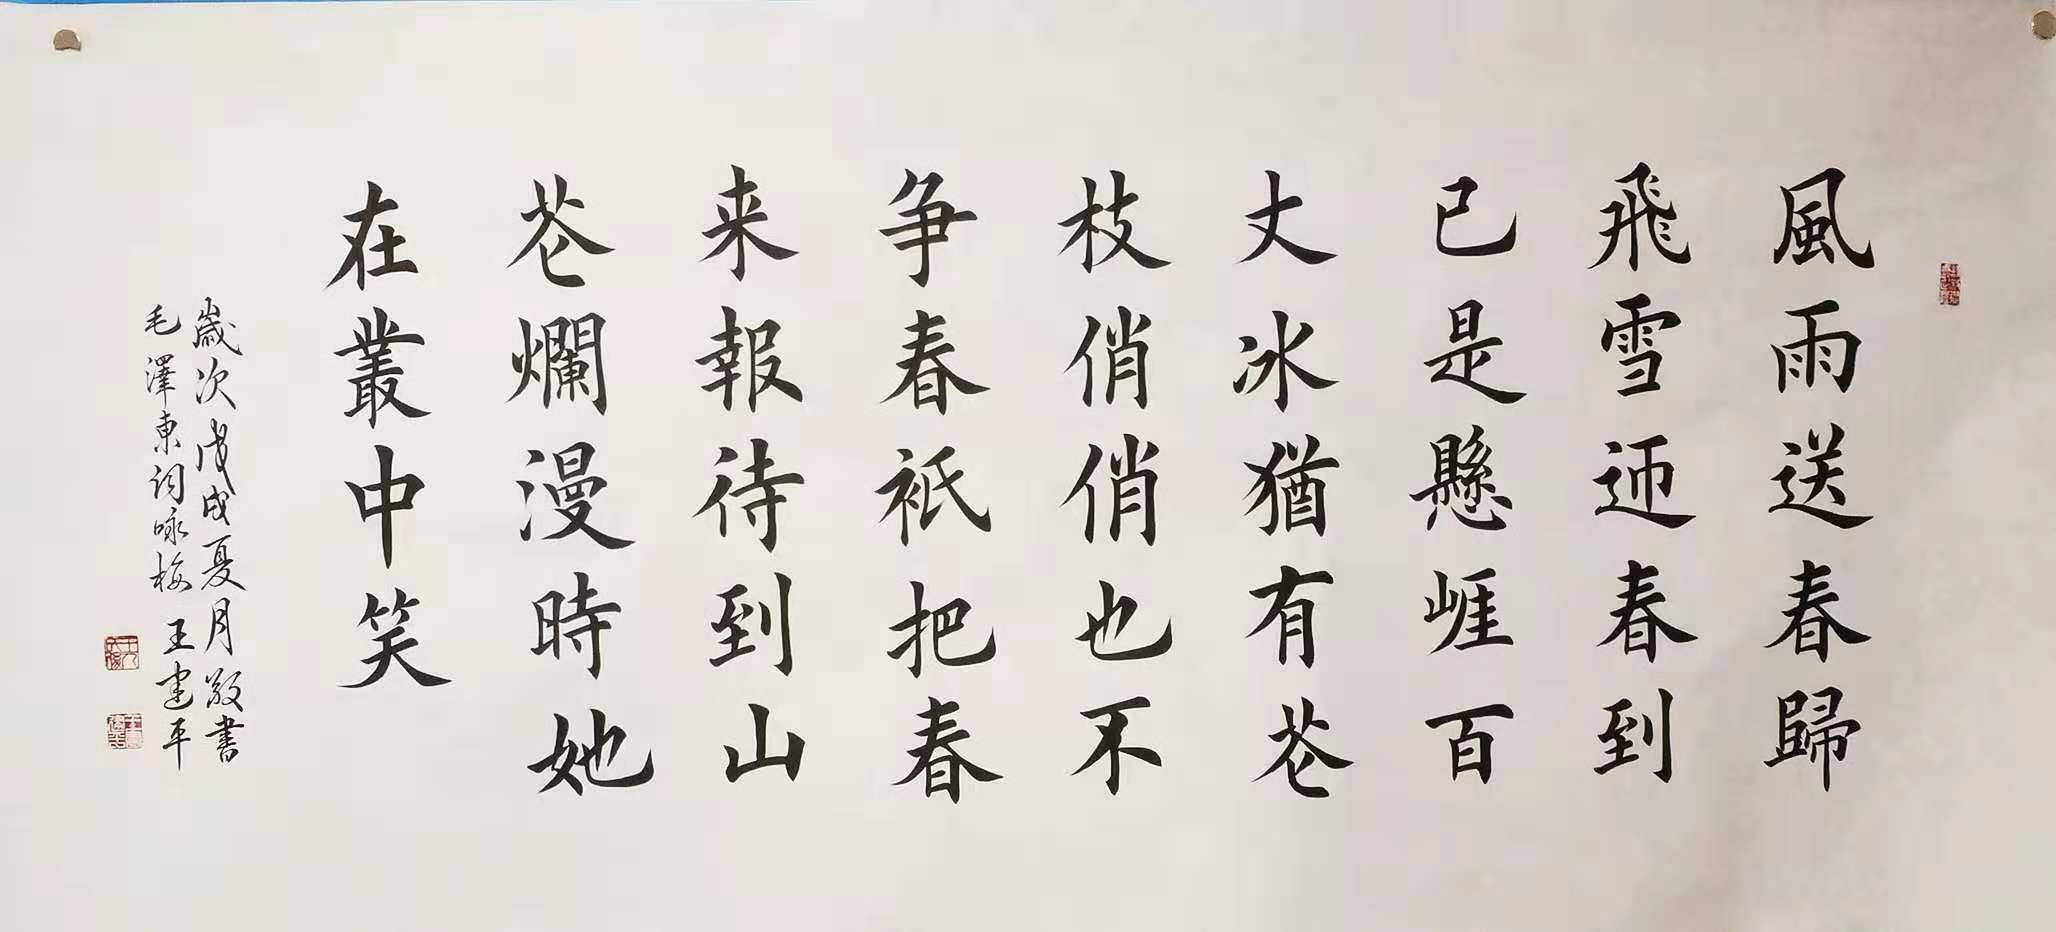 風雨送春歸
飛雪迊春到
已是懸崕百
丈冰猶有苍
枝俏俏也不
争春祇把春
来報待到山
苍爛漫時她
在叢中笑
歲次戊戌夏月敬書
毛澤東詞咏梅 王建平